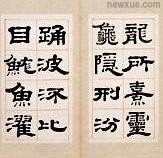 newxue.com
龍所熹靈
隱刑汾
踊波比
目魚濯